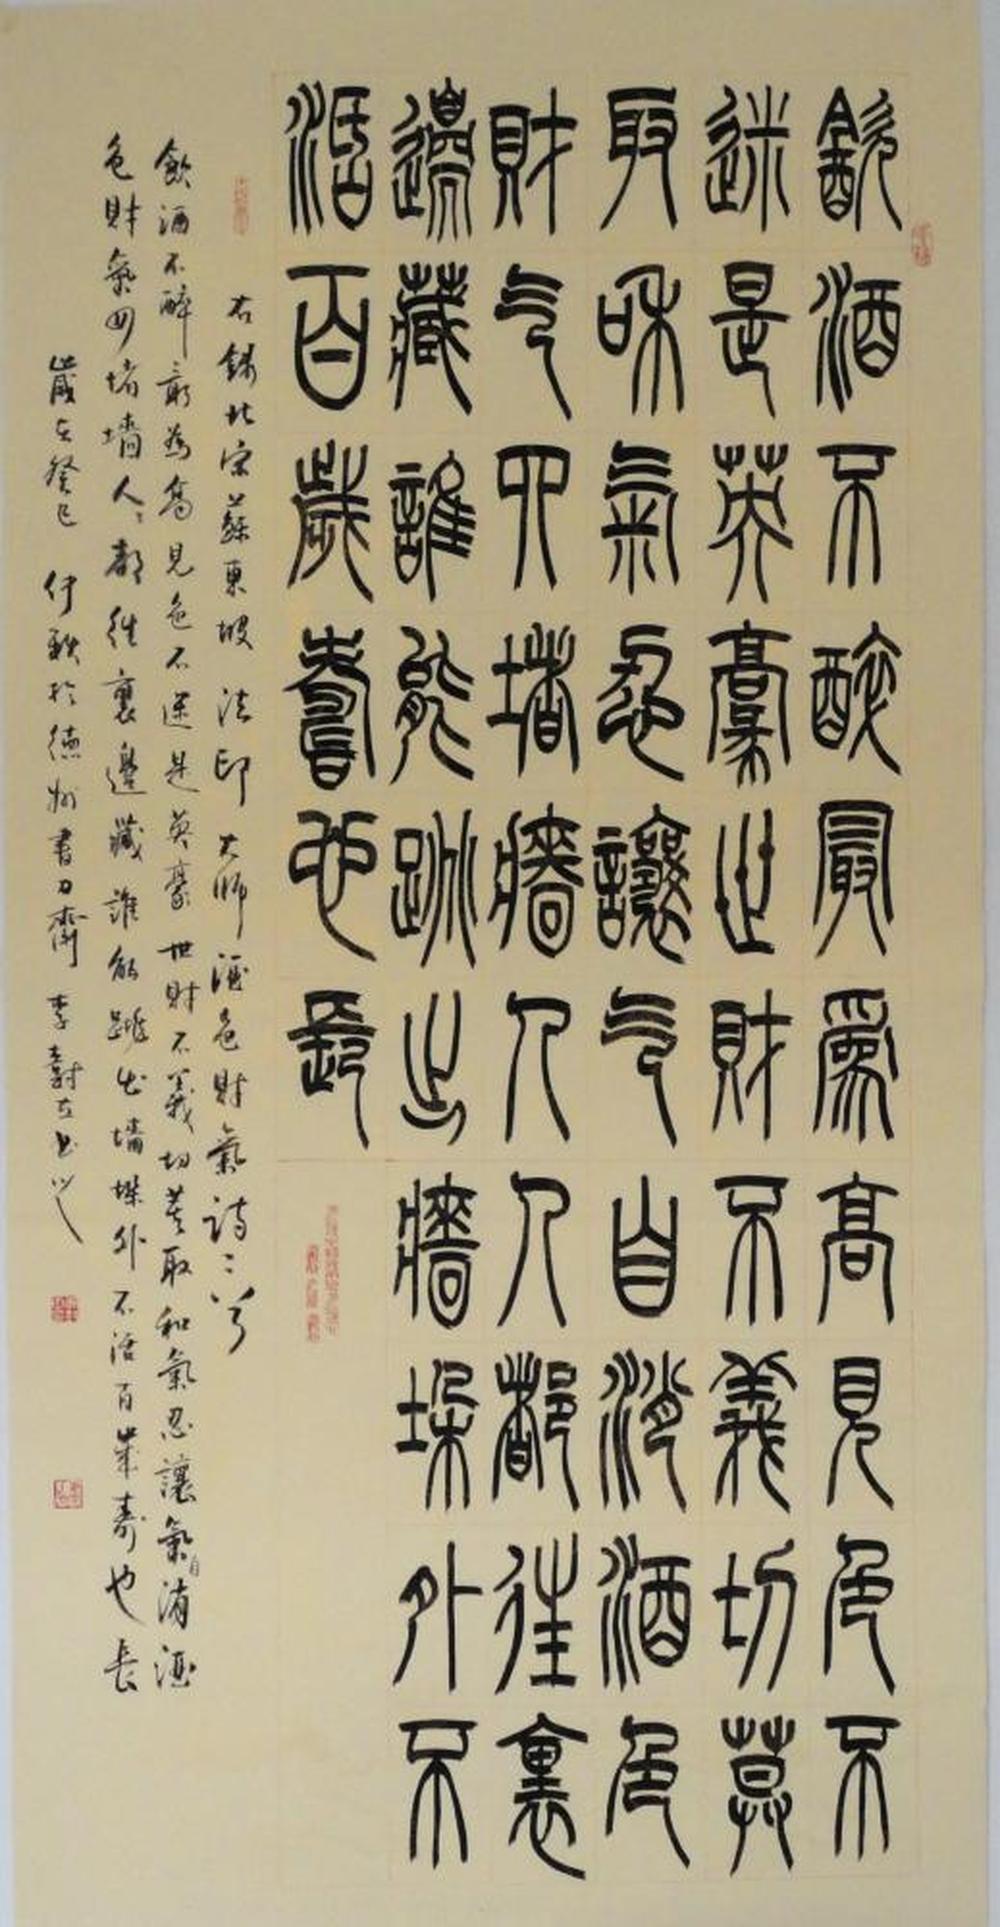 飲酒不醉最為高見色不
迷是英豪世財不義切莫
取和氣忍讓气自消酒色
財气四堵牆人人都往裏
邊藏誰能跳出牆垛外不
活百歲壽也長
右錄北宋蘇東坡 法印大師酒色財氣詩二首
飲酒不醉最為高見色不迷是英豪世財不義切莫取和氣忍讓氣自消酒
色財氣四堵墻人人都往裏邊藏誰能跳出墻垛外不活百歲壽也長
歲在癸巳 仲秋於德州書刀齋 李壽